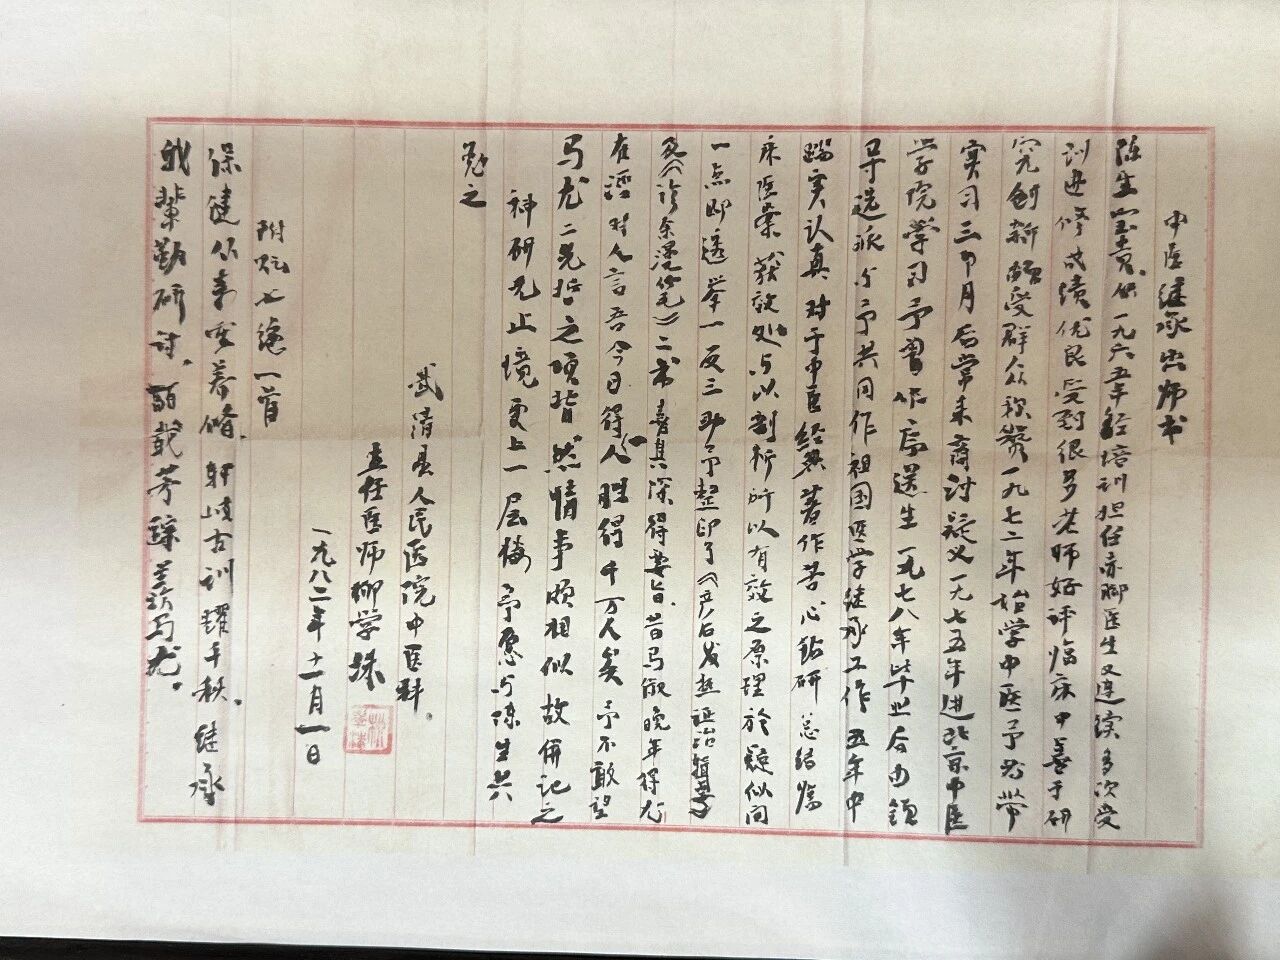 中医继承出师书
陈生宝贵,于一九六五年经培训担任赤脚医生又连续多次受
训进修成绩优良受到很多老师好评临床中善于研
究创新颇受群众称赞一九七二年始学中医予为带
实习三个月后常来商讨疑义一九七五年进北京中医
学院学习予曾作序送生一九七八年毕业后由领
导选派与予共同作祖国医学继承工作五年中
踏实认真对于中医经典著作苦心钻研总结临
床医案获效处与以剖析所以有效之原理於疑似间
一点即透举一反三助予整印了《产后发热证治辑要》
及《诊余漫笔》二书喜其深得要旨昔马俶晚年得尤
在泾对人言吾今日得一人胜得千万人矣予不敢望
马尤二先哲之项背然情事颇相似故併记之
科研无止境更上一层楼予愿与陈生共
勉之
武清县人民医院中医科
主任医师柳学洙
一九八二年十一月一日
附贶七绝一首
保健从事要养脩,轩岐古训耀千秋,继承
我辈勤研讨,